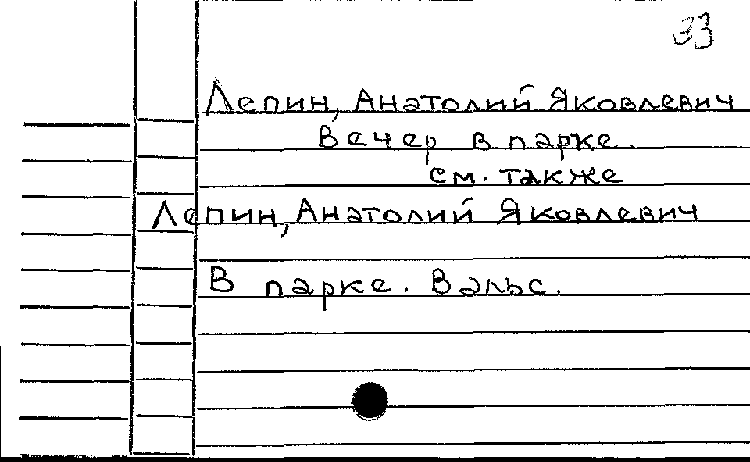 33
Лепин, Анатолий Яковлевич
Вечер в парке.
см. также
Лепин, Анатолий Яковлевич
В парке. Вальс.